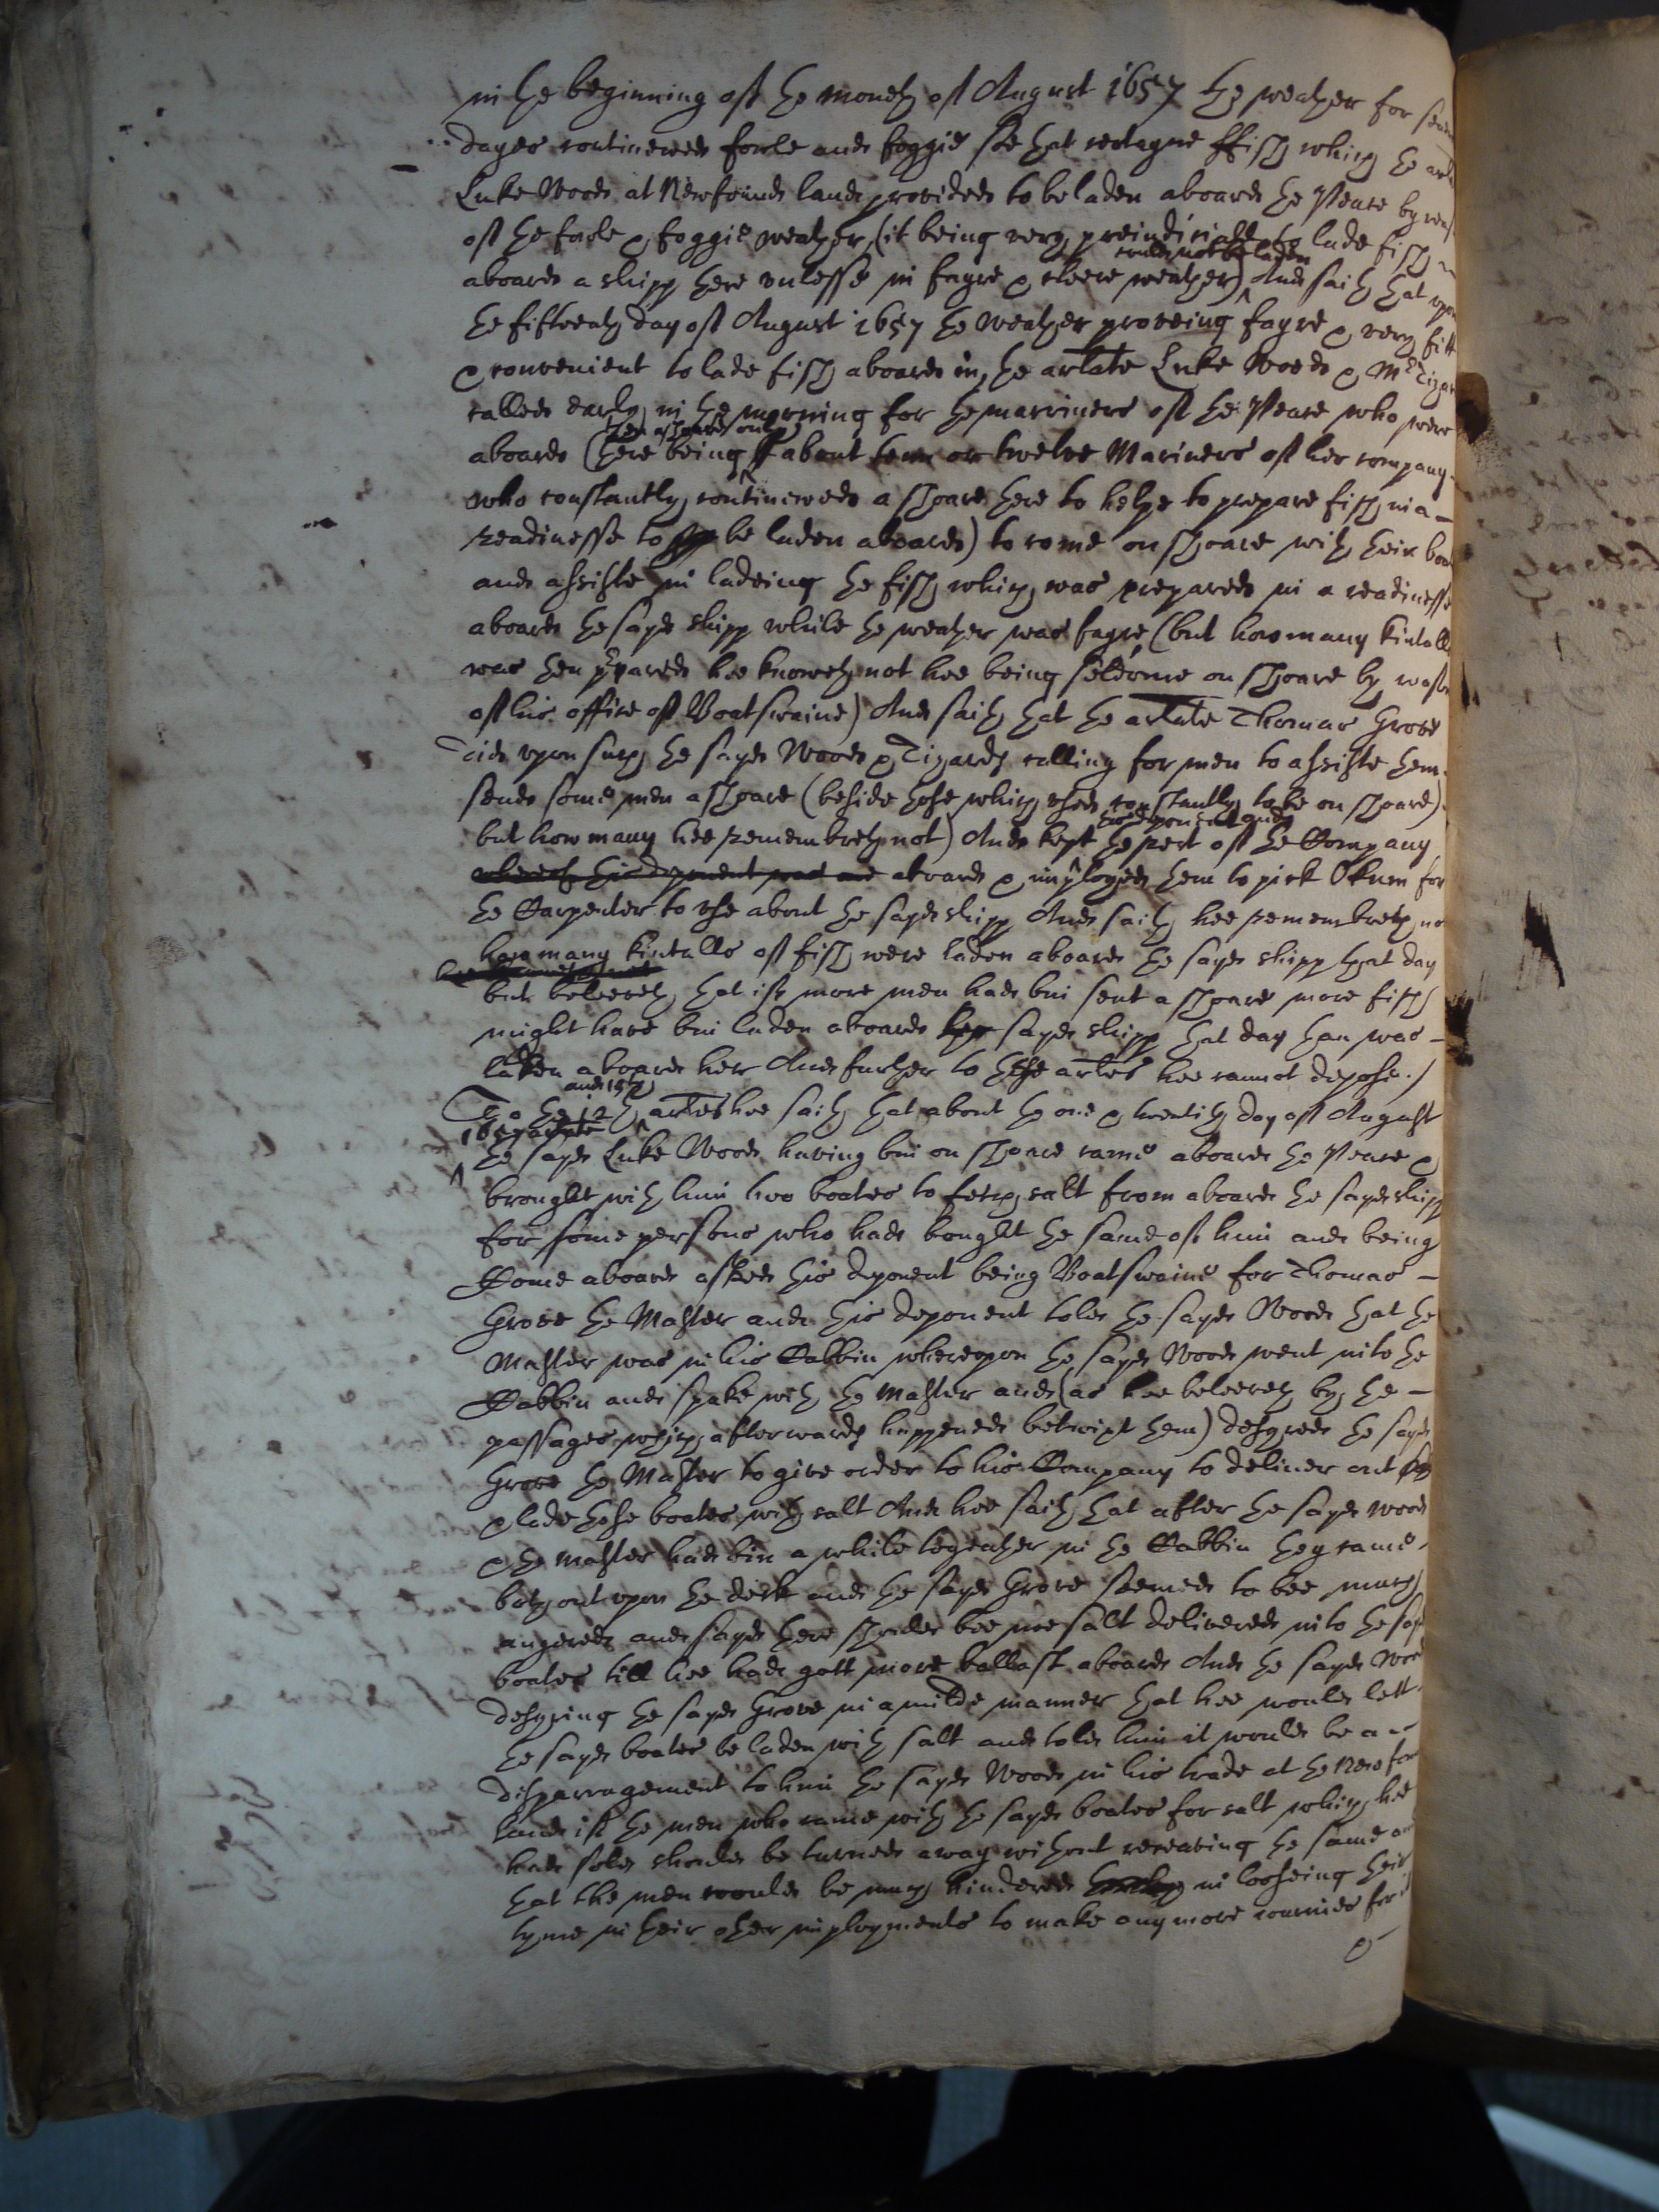 in the beginning of the moneth of August 1657 the weather for
dayes continewed foule and foggie soe that certayne ffish which the
Luke Woods at Newfound land provided to be laden aboard the Peace by
of the foule & foggie weather, (it being very preiudiciall to lade fish
could not be laden
aboard a shipp there unlesse in fayre & cleere weather) And saith that upon
the fifteenth day of August 1657 the weather proveing fayre & very fitt
& convenient to lade fish aboard in, the arlate Luke Woods & Mr
called early in the morning for the marriners of the Peace who were
then ashoare only
aboard (there being about tenn or twelve Mariners of her company
who constantly continewed a shoare there to helpe to prepare fish in a
readinesse to be laden aboard) to come on shoare with their
and assiste in ladeing the fish which was prepared in a readinesse
aboard the sayd shipp while the weather was fayre, (but how many kintalls
was then prepared hee knoweth not hee being seldome on shoare by
of his office of Boatswaine) And saith that the arlate Thomas Grove
did upon such the sayd Woods & Tizards calling for men to assiste them
send some men a shoare (beside those which used constantly to be on shoare)
this deponent and
but how many hee remembreth not) And kept the rest of the Company
whereof this deponent was one aboard & imployed them to pick Okum for
the Carpenter to use about the sayd shipp And saith hee remembreth
how many kintalls of fish were laden aboard the sayd shipp that day
hee knoweth not
but beleeveth that if more men had bin sent a shoare more fish
might have bin laden aboard her sayd shipp that day than was
laden aboard her And further to these arles hee cannot depose./
and 13th
To the 12th arles hee saith that about the one & twentith day of August
1657
the sayd Luke Woods having bin on shoare came aboard the Peace &
brought with him two boates to fetch salt from aboard the sayd shipp
for some persons who had bought the same of him and being
Come aboard asked this deponent being Boatswaine for Thomas
Grove the Master and this deponent told the sayd Woods that the
Master was in his Cabbin whereupon the sayd Woods went into the
Cabbin and spake with the Master and (as hee beleeveth by the
passages which afterwards happened betwixt them) desyred the sayd
Grove the Master to give order to his Company to deliver out
& lade those boates with salt And hee saith that after the sayd Woods
& the Master had bin a while togeather in the Cabbin they came
both out upon the deck and the sayd Grove seemed to bee much
angered and sayd there should bee noe salt delivered into the
boates till hee had gott more ballast aboard And the sayd Woods
desyring the sayd Grove in a milde manner that hee would lett
the sayd boates be laden with salt and told him it would be a
disparragement to him the sayd Woods in his trade at the
land if the men who came with the sayd boates for salt which hee
had sold should be turned away without receaving the same
that the men would be much hindered in looseing their
tyme in their other imployments to make any more iournies for
&